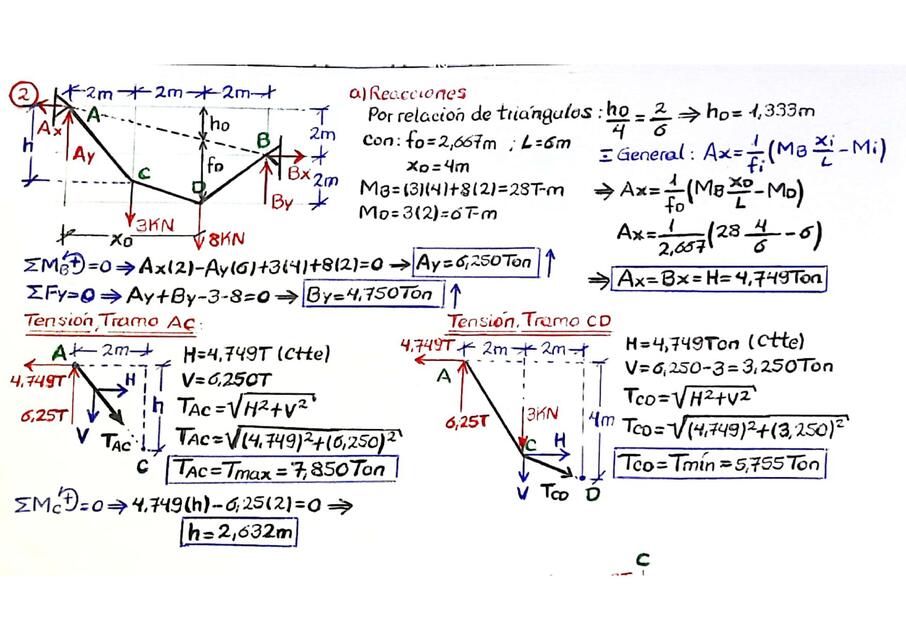 2
2m 2m 2m
A
Ax
Ay
h
h0
f0
B
2m
Bx
2m
By
C
D
3KN
8KN
x0
a) Reacciones
Por relación de triángulos: h0/4 = 2/6 ⇒ h0 = 1,333m
con: f0 = 2,667m ; L = 6m
x0 = 4m
MB = (3)(4)+8(2) = 28T-m
MD = 3(2) = 6T-m
Ξ General: Ax = 1/fi (MB xi/L - Mi)
⇒ Ax = 1/f0 (MB x0/L - MD)
Ax = 1/2,667 (28 4/6 - 6)
⇒ Ax = Bx = H = 4,749 Ton
ΣMB(+) = 0 ⇒ Ax(2) - Ay(6) + 3(4) + 8(2) = 0 ⇒ Ay = 6,250 Ton ↑
ΣFy = 0 ⇒ Ay + By - 3 - 8 = 0 ⇒ By = 4,750 Ton ↑
Tensión, Tramo AC:
A 2m
4,749T
6,25T
H
V
TAC
h
C
H = 4,749T (Ctte)
V = 6,250T
TAC = √H²+V²
TAC = √(4,749)²+(6,250)²
TAC = Tmax = 7,850 Ton
ΣMC(+) = 0 ⇒ 4,749(h) - 6,25(2) = 0 ⇒
h = 2,632m
Tensión, Tramo CD
4,749T 2m 2m
A
6,25T
3KN
4m
C H
V TCD D
H = 4,749 Ton (Ctte)
V = 6,250 - 3 = 3,250 Ton
TCD = √H²+V²
TCD = √(4,749)²+(3,250)²
TCD = Tmín = 5,755 Ton
C